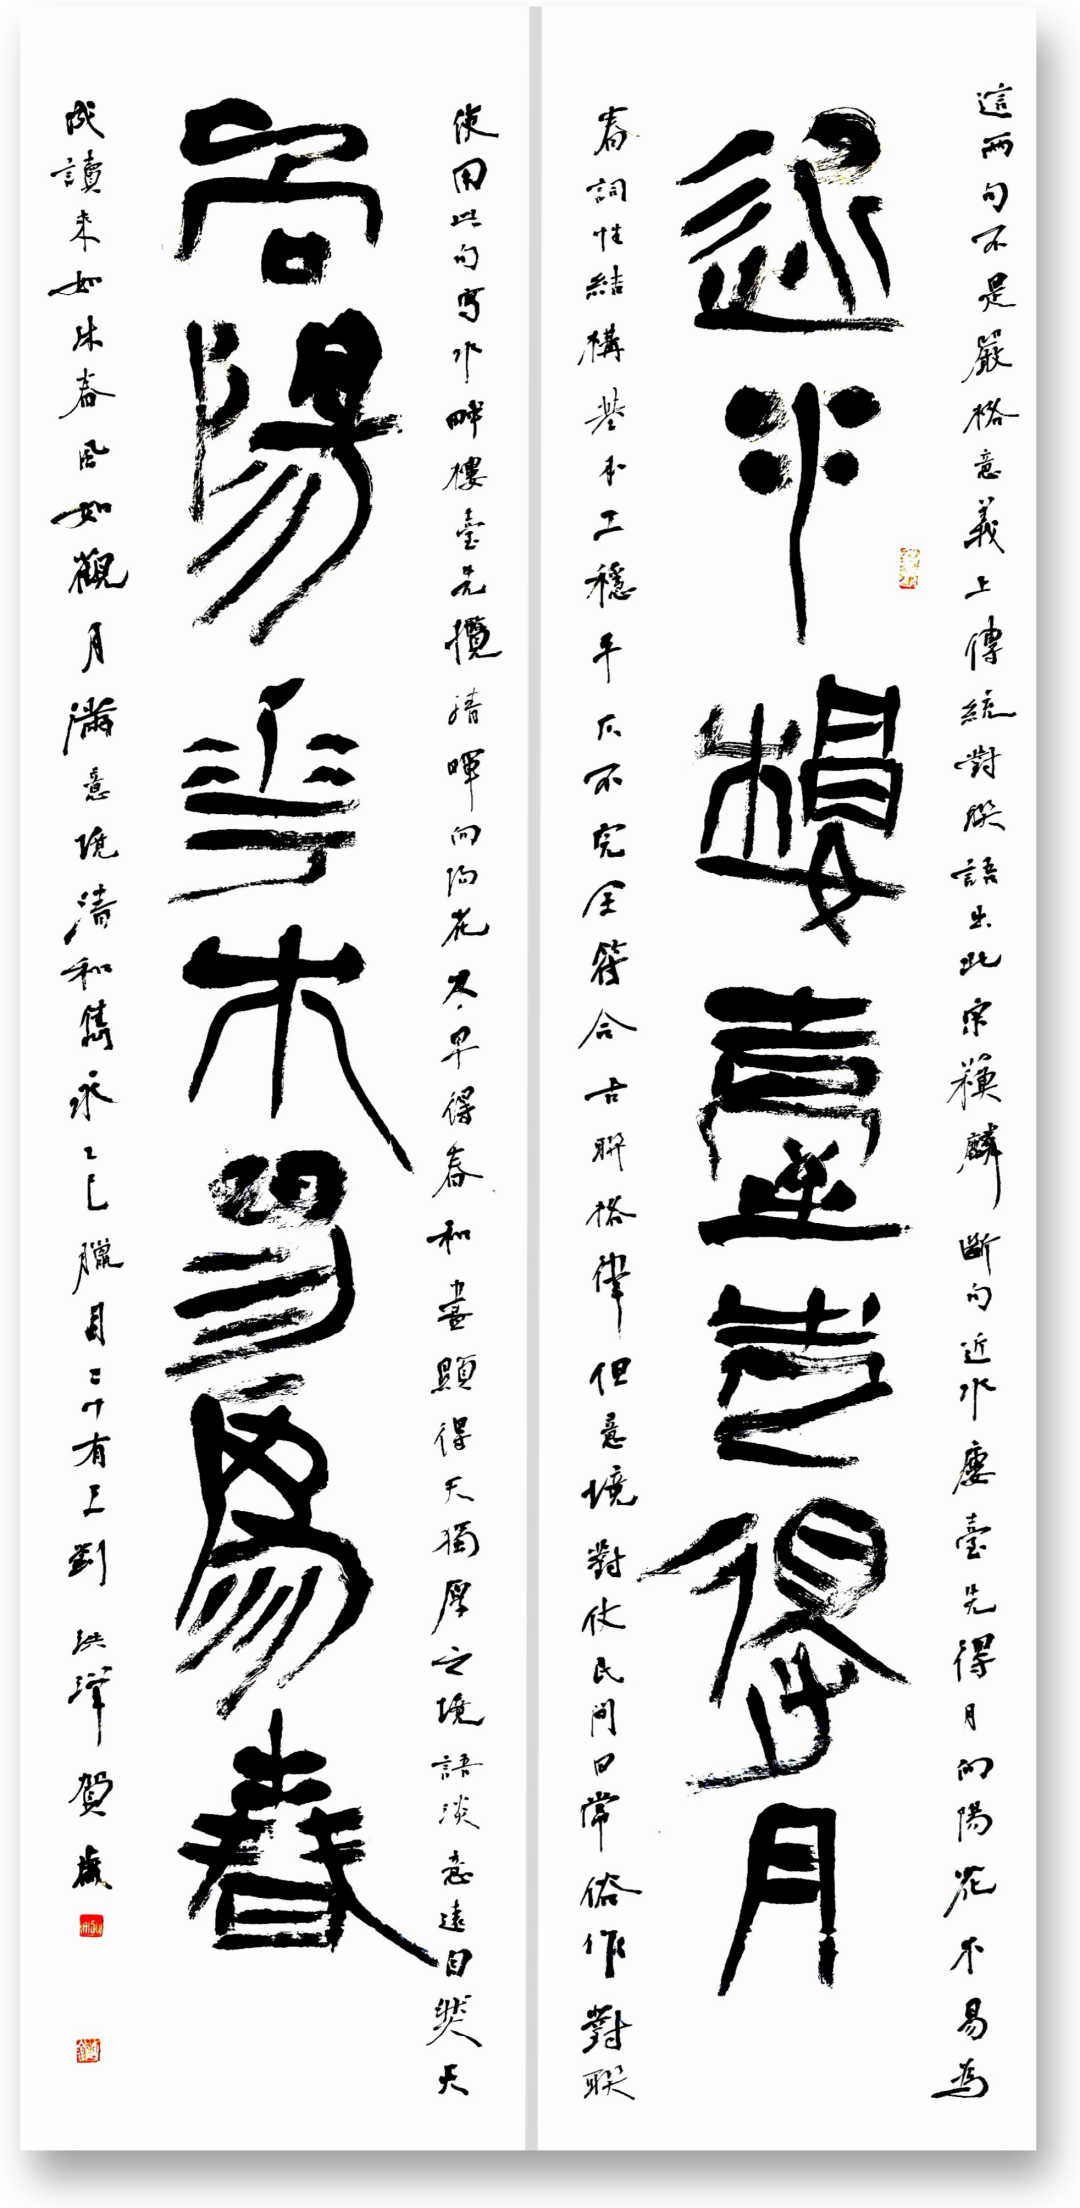 這兩句不是嚴格意義上傳統對聯語出北宋蘇麟斷句近水樓臺先得月向陽花木易為
近水樓臺先得月
春詞性結構基本工穩平仄不完全符合古聯格律但意境對仗民間日常俗作對聯
使用此句寫水畔樓臺先攬清暉向陽花木早得春和盡顯得天獨厚之境語淡意遠自然天
向陽花木易為春
成讀來如沐春風如觀月滿意境清和雋永乙巳臘月二十有三劉洪洋賀歲